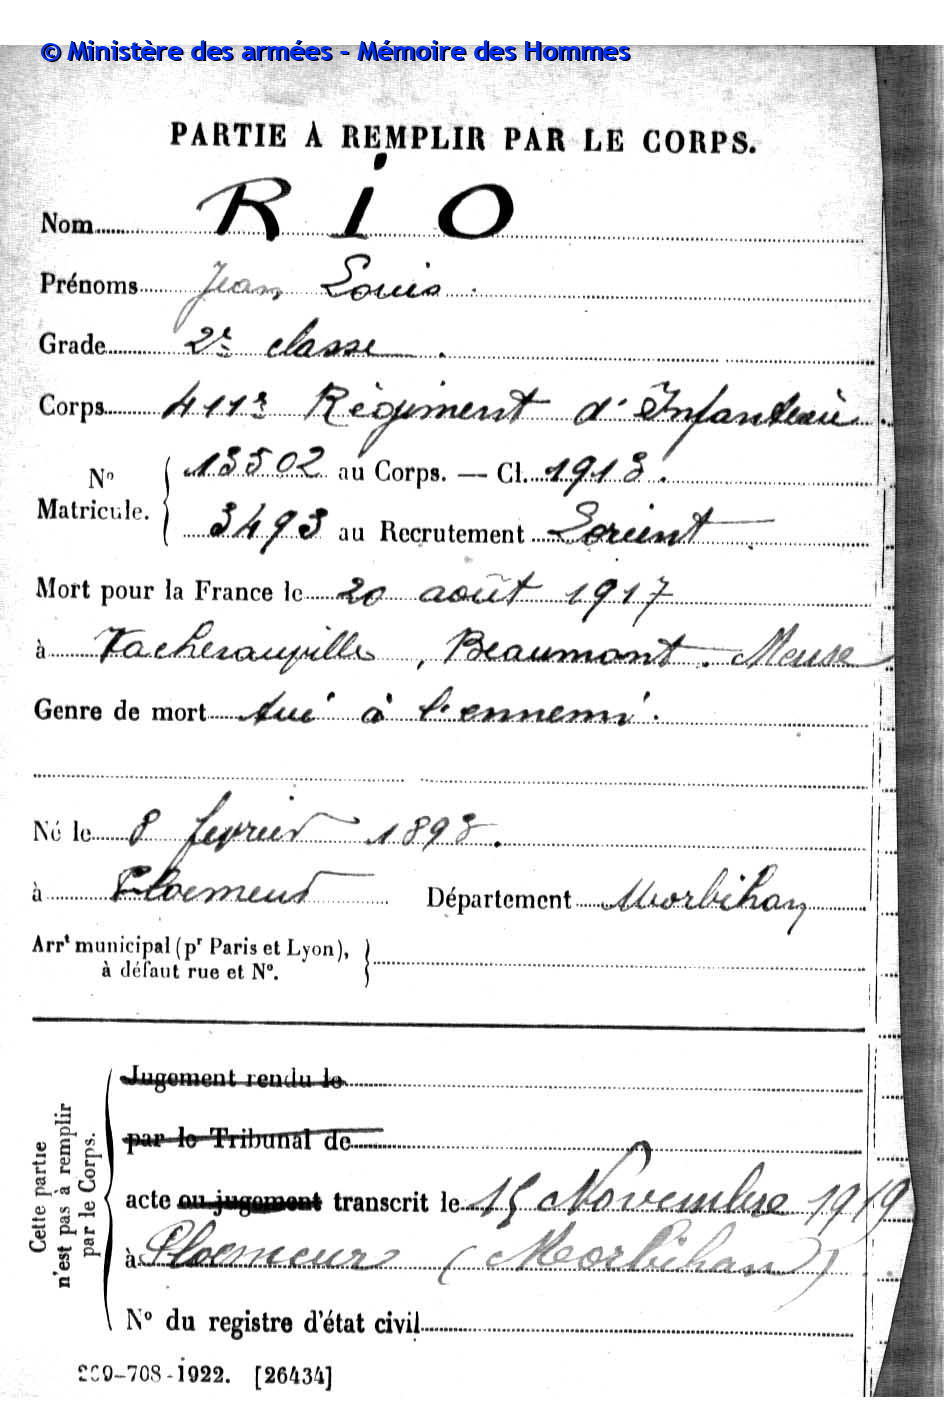 © Ministère des armées - Mémoire des Hommes
PARTIE À REMPLIR PAR LE CORPS.
Nom RIO
Prénoms Jean Louis
Grade 2e classe
Corps 411e Régiment d'Infanterie
No Matricule. 13502 au Corps. — Cl. 1913.
3493 au Recrutement Lorient
Mort pour la France le 20 août 1917
à Vacherauville, Beaumont. Meuse
Genre de mort tué à l'ennemi.
Né le 8 février 1893.
à Ploemeur Département Morbihan
Arrt municipal (pr Paris et Lyon),
à défaut rue et No.
Cette partie
n'est pas à remplir
par le Corps.
Jugement rendu le
par le Tribunal de
acte ou jugement transcrit le 15 Novembre 1919
à Ploemeur (Morbihan)
No du registre d'état civil
-708-1922. [26434]